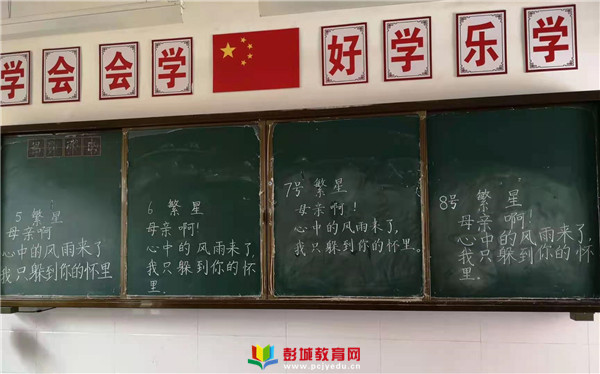 学会会学
好学乐学
5 繁星
母亲啊
心中的风雨来了
我只躲到你的怀里
6 繁星
母亲啊!
心中的风雨来了,
我只躲到你的怀
里.
7号 繁星
母亲啊!
心中的风雨来了,
我只躲到你的怀里。
8号 繁星
母亲啊!
心中的风雨来了,
我只躲到你的怀
里.
彭城教育网
www.pcjyedu.cn